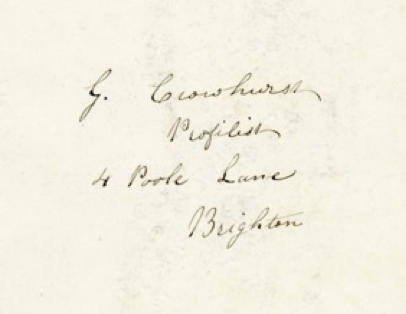 G. Crowhurst
Profilist
4 Poole Lane
Brighton